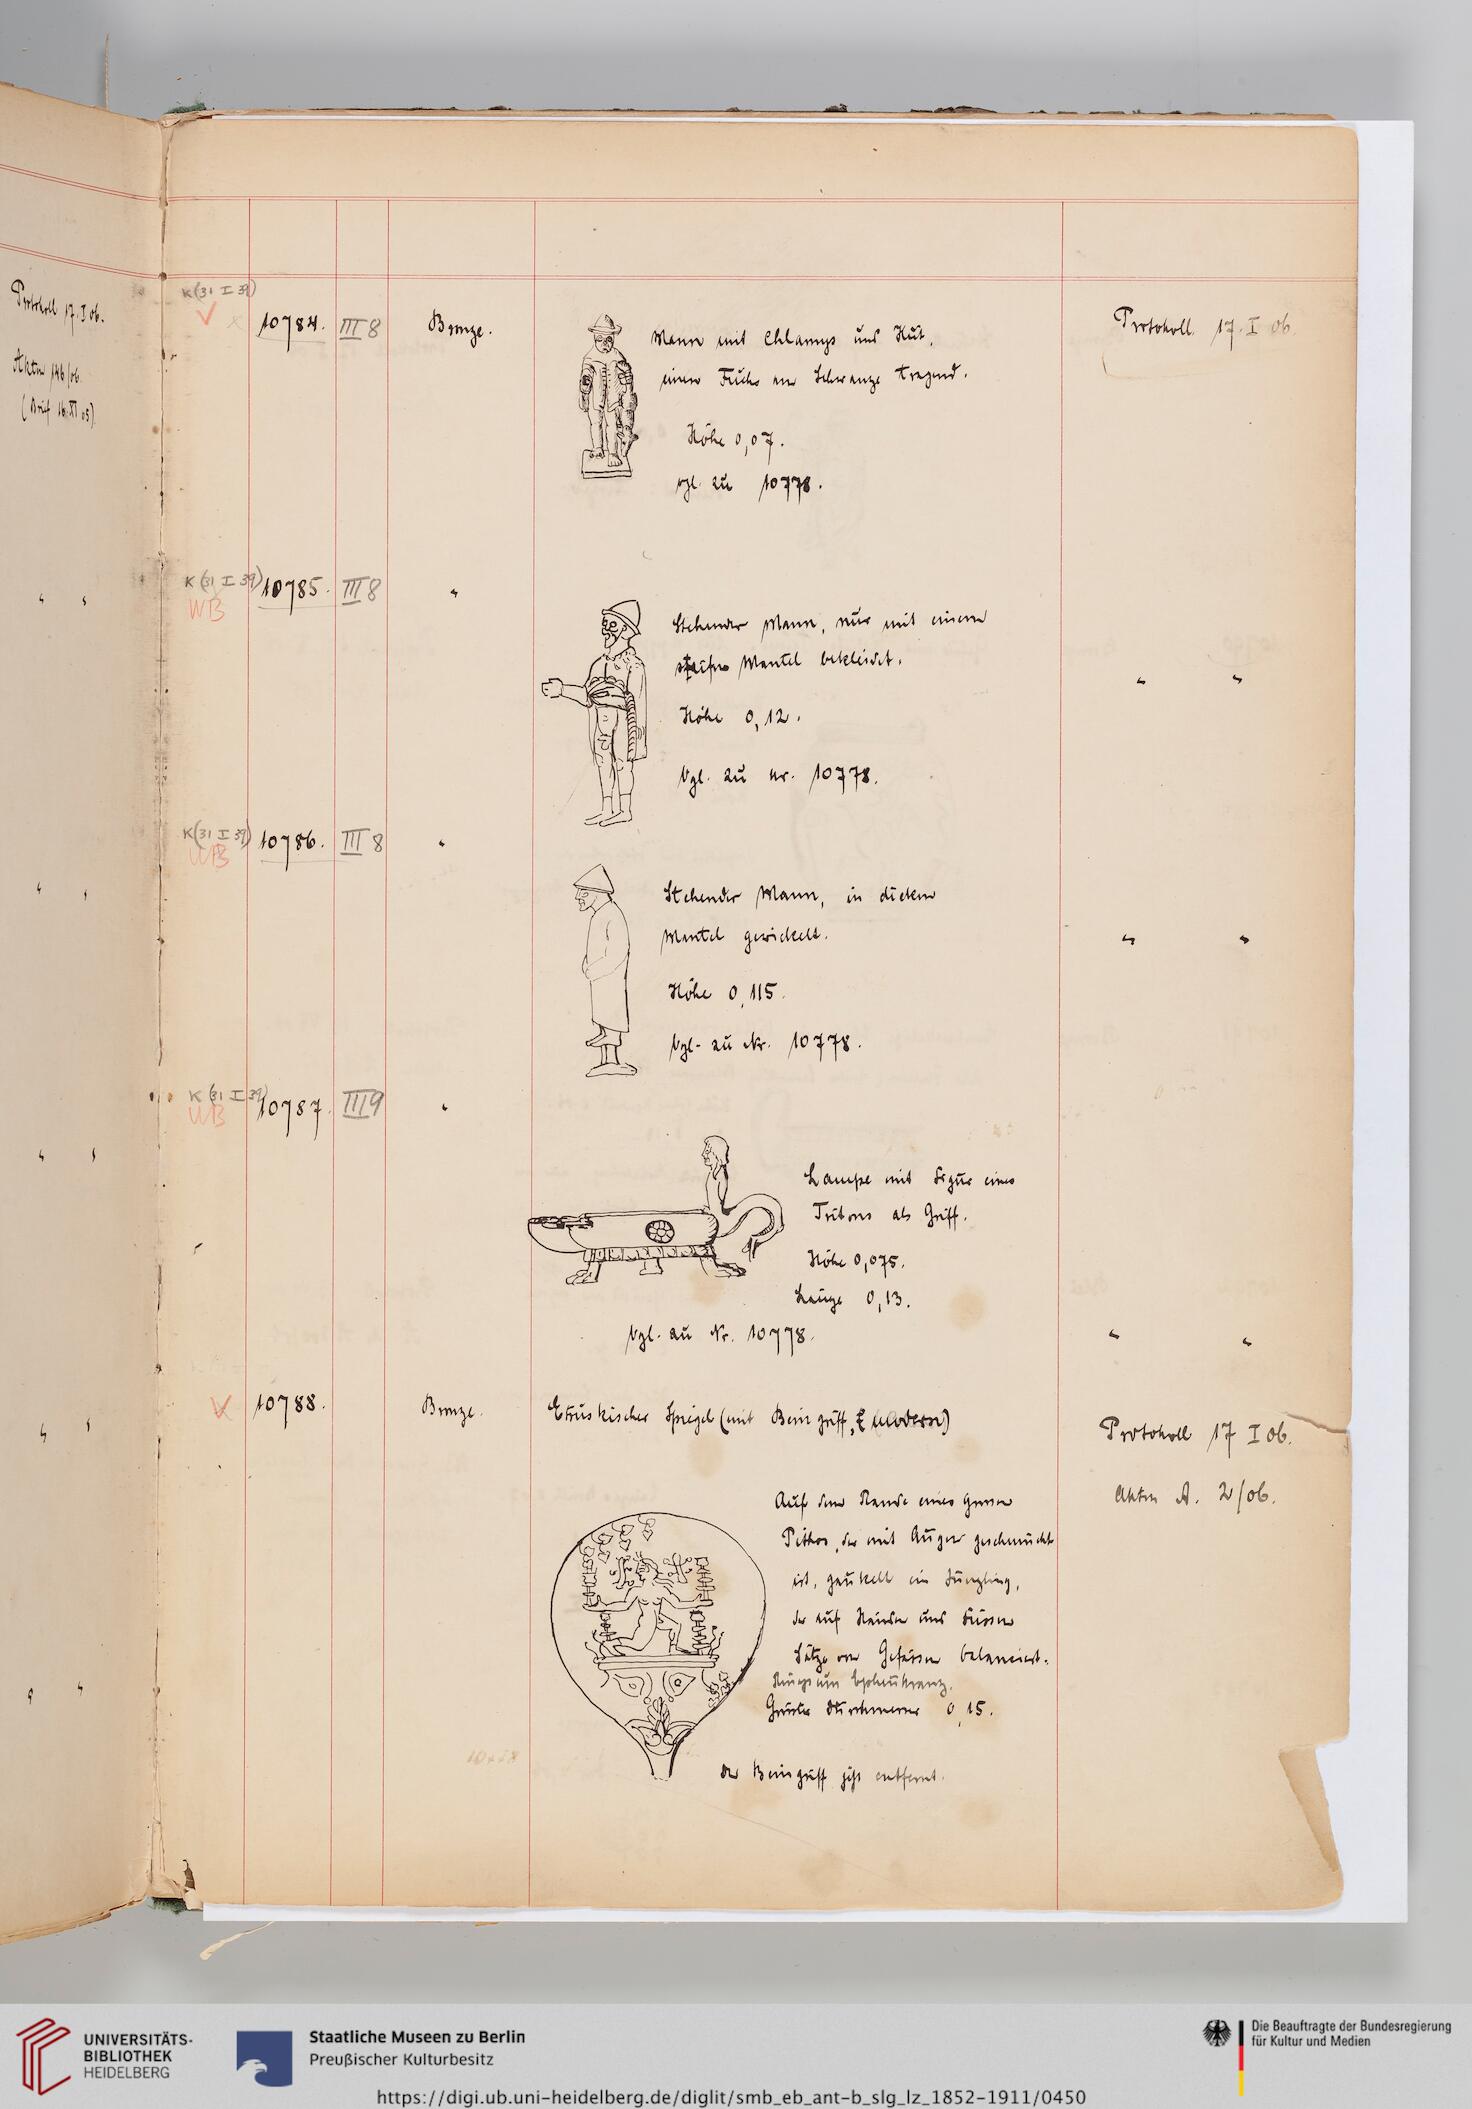 Protokoll 17. I 06.
Akten 146/06.
(Brief 16. XI 05)
K (31 I 39)
10784. III 8 Bronze.
Mann mit Chlamys und Hut,
einen Fuchs am Schwanze tragend.
Höhe 0,07.
vgl. zu 10778.
Protokoll 17. I 06.
K (31 I 39)
WB
10785. III 8 "
Stehender Mann, nur mit einem
steifen Mantel bekleidet.
Höhe 0,12.
Vgl. zu Nr. 10778.
" "
K (31 I 39)
WB
10786. III 8 "
Stehender Mann, in dicken
Mantel gewickelt.
Höhe 0,115.
Vgl. zu Nr. 10778.
" "
K (31 I 39)
WB
10787. III 9 "
Lampe mit Figur eines
Tritons als Griff.
Höhe 0,075.
Länge 0,13.
Vgl. zu Nr. 10778.
" "
10788. Bronze.
Etruskischer Spiegel (mit Beingriff, modern)
Protokoll 17 I 06.
Akten A. 2/06.
Auf dem Rande eines grossen
Pithos, der mit Augen geschmückt
ist, gaukelt ein Jüngling,
der auf Händen und Füssen
Sätze von Gefässen balanciert.
Rings um Epheukranz.
Grösster Durchmesser 0,15.
Der Beingriff jetzt entfernt.
UNIVERSITÄTS-
BIBLIOTHEK
HEIDELBERG
Staatliche Museen zu Berlin
Preußischer Kulturbesitz
Die Beauftragte der Bundesregierung
für Kultur und Medien
https://digi.ub.uni-heidelberg.de/diglit/smb_eb_ant-b_slg_lz_1852-1911/0450